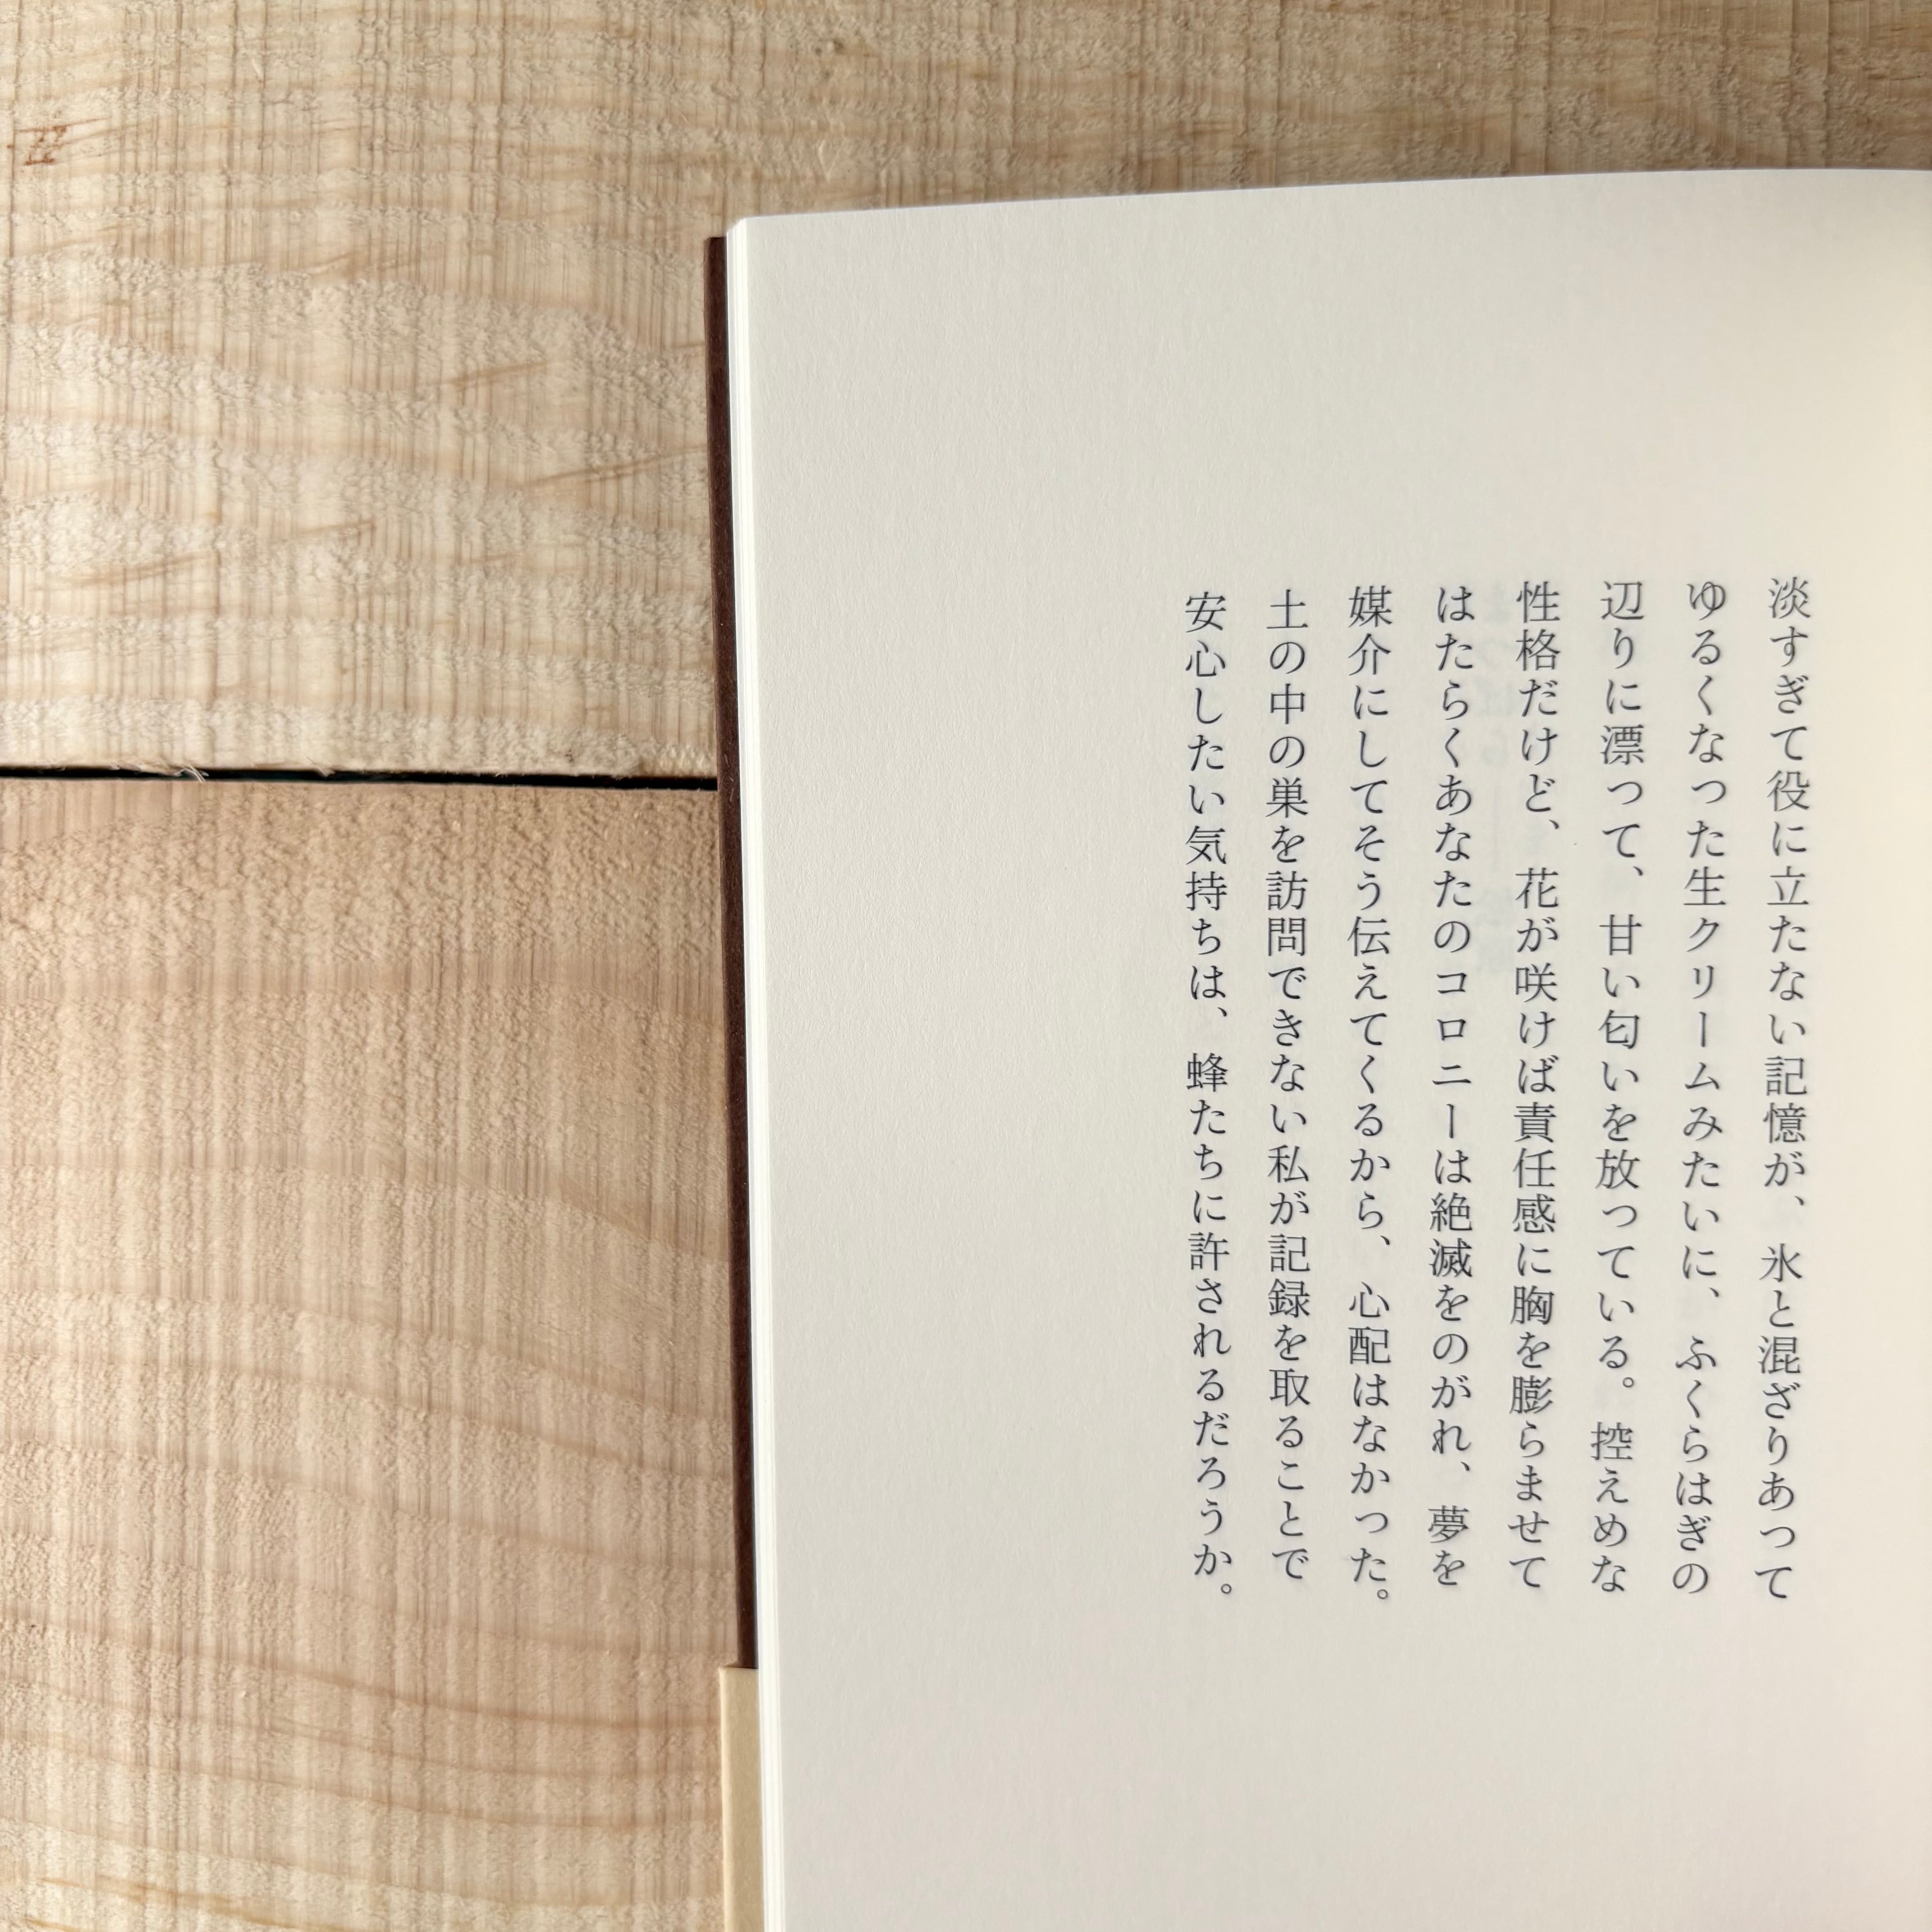 淡すぎて役に立たない記憶が、氷と混ざりあって
ゆるくなった生クリームみたいに、ふくらはぎの
辺りに漂って、甘い匂いを放っている。控えめな
性格だけど、花が咲けば責任感に胸を膨らませて
はたらくあなたのコロニーは絶滅をのがれ、夢を
媒介にしてそう伝えてくるから、心配はなかった。
土の中の巣を訪問できない私が記録を取ることで
安心したい気持ちは、蜂たちに許されるだろうか。